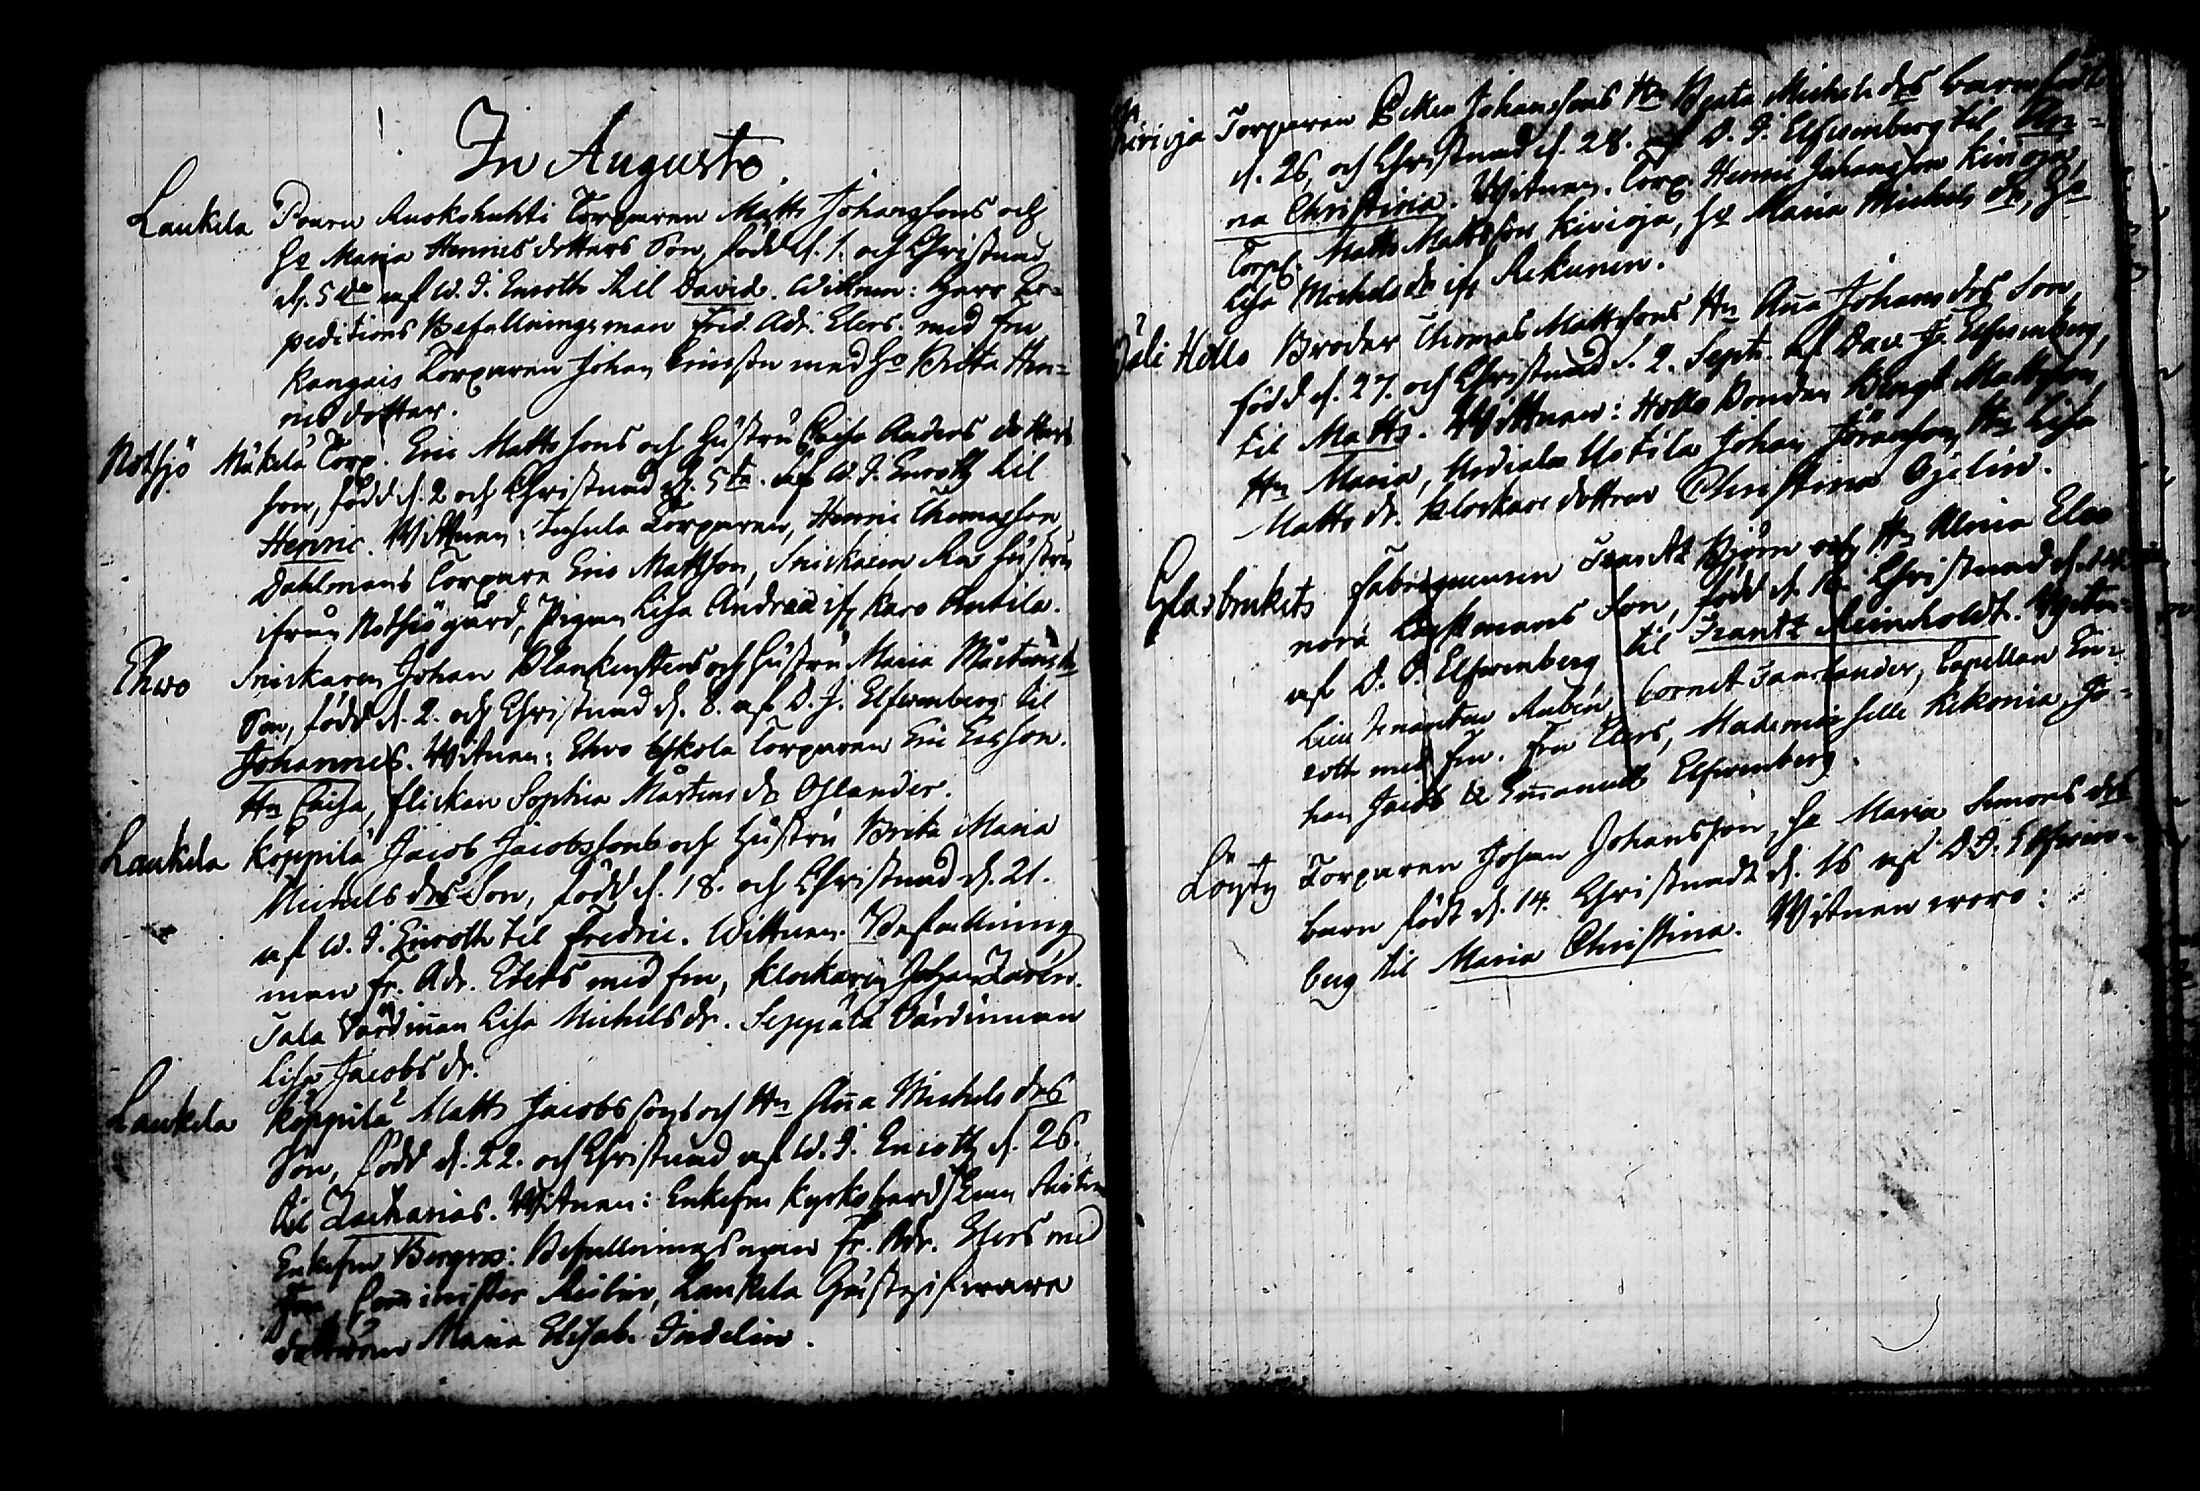 In Augusto.
Laukela Ruokohuhti Torparen Matts Johanssons och
Ho Maria Henrics dotters Son, född d. 1. och Christnad
d. 5te af W. I. Enroth till David. Witnen: Herr Ex-
peditions Befallningsman Frid. Adr. Elers. med fru
Kangais Torparen Johan med Ho Brita Hen-
rics dotter.
Notsjö Mäkelä Torp. Eric Mattssons och Hustru Caisa Anders dotters
Son, född d. 2 och Christnad d. 5te. af W. I. Enroth til
Henric. Wittnen: Torparen, Henric Thomasson
Dahlmans Torpare Eric Mattson, Hustru
ifrån Notsjö gård, Pigan Lisa Andrae if. Karo Antila.
Ehwo Snickaren Johan Blankensteens och Hustru Maria Mårtens dr
Son, född d. 2. och Christnad d. 8. af D. J. Elfwenberg til
Johannes. Witnen: Ehwo Eskola Torparen Eric Ericson.
Hn Caisa, flickan Sophia Mårtens dr Oslander.
Laukela Köppilä Jacob Jacobssons och Hustru Brita Maria
Michelsdrs Son, född d. 18. och Christnad d. 21.
af W. I. Enroth til Fredric. Wittnen. Befallning
man Fr. Adr. Elers med fru, Klockaren Johan
Tala Värdinnan Lisa Michelsdr. Seppälä Värdinnan
Lisa Jacobsdr.
Laukela Köppilä Matts Jacobssons och Hn Anna Michelsdrs
Son, född d. 22. och Christnad af W. I. Enroth d. 26.
til Zacharias. Witnen: Enkefru Kyrkoherdskan
Enkefru Bergroo: Befallningsman Fr. Adr. Elers med
Fru, Laukela Gästgifware
dottren Maria Elisab. Indelin.
Kivioja Torparen Petter Johanssons Hn Beata Michelsdrs barn född
d. 26, och Christnad d. 28. af D. I. Elfwenberg til An-
na Christina. Witnen. Torp. Henric Johansson Kivioja,
Torp. Matts Mattsson Kivioja, Ho Maria Michelsdr, Ho
Lisa Michelsdr if. Rekunen.
Jäli Hollo Broder Thomas Mattssons Hn Anna Johansdrs Son,
född d. 27. och Christnad d. 2. Septr. af Dav. J. Elfwenberg,
til Matts. Wittnen: Hollo Bonden Bengt Mattsson,
Hn Maria, Uotila Johan Göransson, Hn Lisa
Mattsdr. Klockare dottren Christina Ojelin.
Glasbrukets Fabriqueuren Frantz Björn och Hn Ulrica Eleo
nora Son, född d. Christnad d.
af D. I. Elfwenberg til Frantz Reinholdt. Witn-
Lieutenanten Rubén, Cornet, Capellan En-
roth med fru. Fru Elers, Mademoiselle Kekonia, Jo-
han Jacob & Emanuel Elfwenberg.
Löyty Torparen Johan Johansson, Ho Maria Simonsdrs
barn född d. 14. Christnadt d. 16 af D. I. Elfwen-
berg til Maria Christina. Witnen woro: